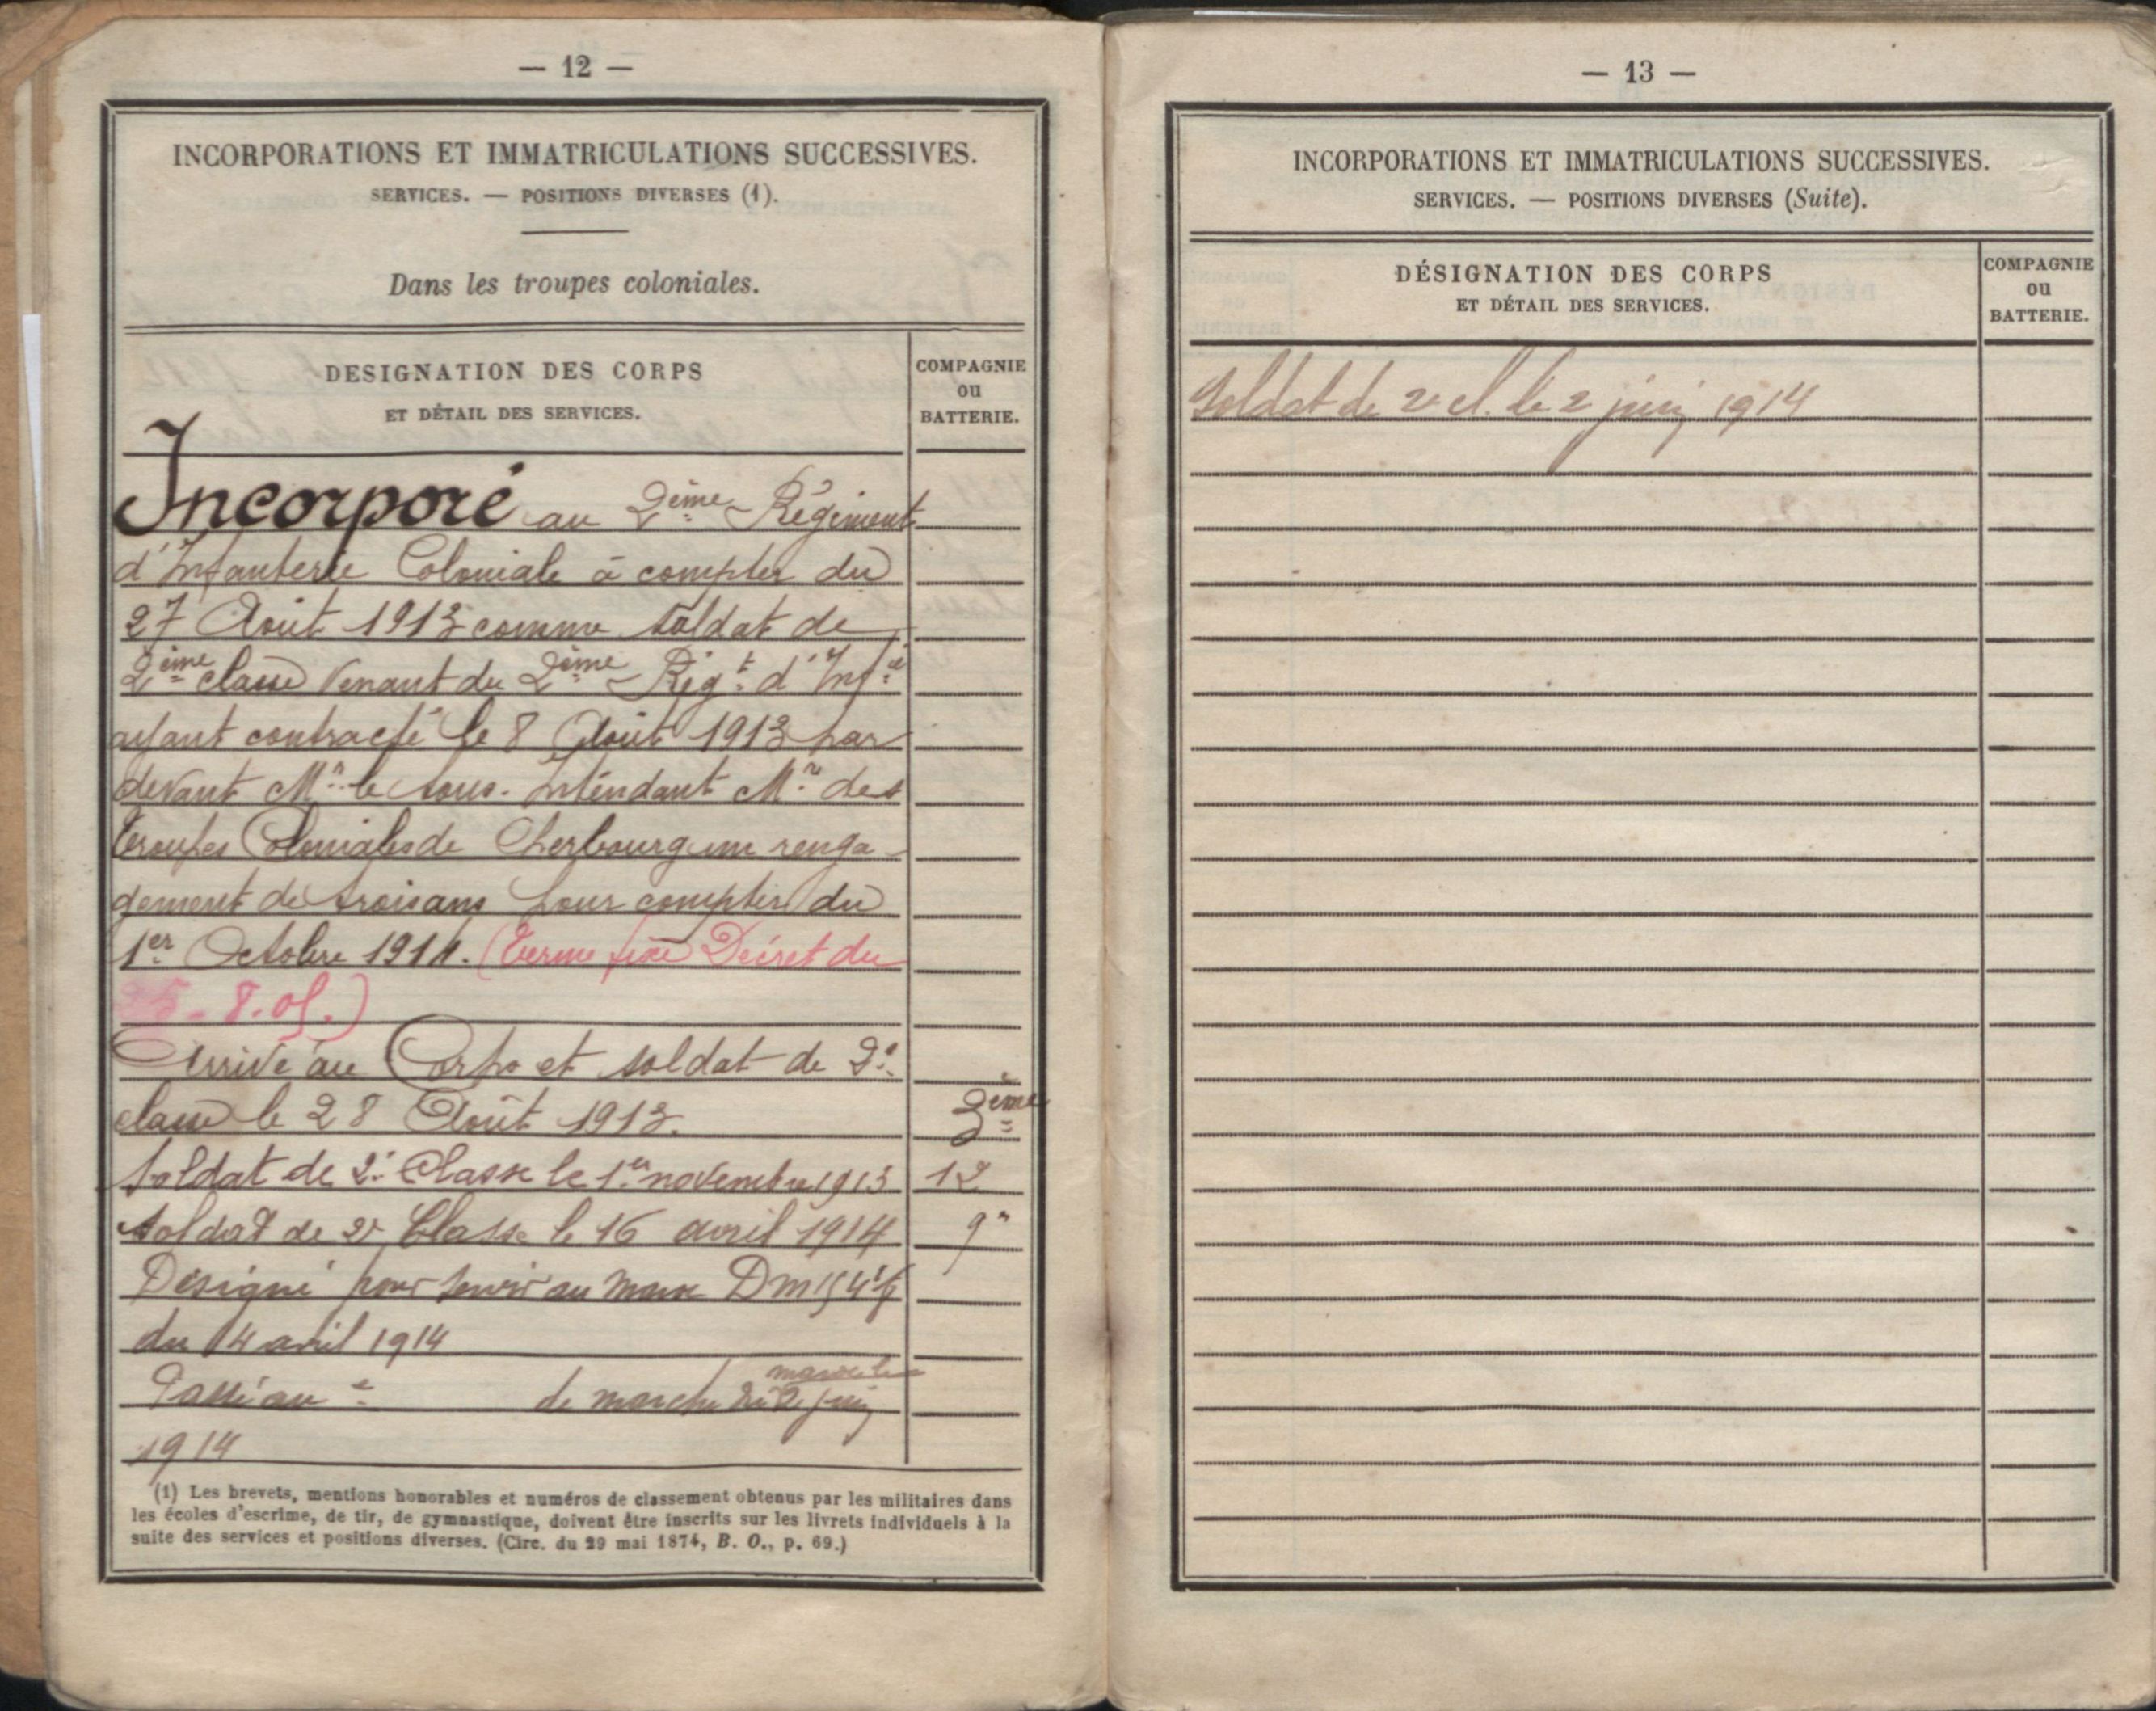 — 12 —
INCORPORATIONS ET IMMATRICULATIONS SUCCESSIVES.
SERVICES. — POSITIONS DIVERSES (1).
Dans les troupes coloniales.
DESIGNATION DES CORPS
ET DÉTAIL DES SERVICES.
COMPAGNIE
OU
BATTERIE.
Incorporé au 2ème Régiment
d'Infanterie Coloniale à compter du
27 Août 1913 comme soldat de
2ème classe venant du 2ème Régt d'Infie
ayant contracté le 8 Août 1913 par
devant Mr le Sous-Intendant Mre des
Troupes Coloniales de Cherbourg un renga-
gement de trois ans pour compter du
1er Octobre 1914. (Terme fixé Décret du
25-8.05.)
Arrivé au Corps et soldat de 2e
classe le 28 Août 1913. 3ème
Soldat de 2e Classe le 1er novembre 1913 12
Soldat de 2e Classe le 16 avril 1914 9e
Désigné pour servir au Maroc DM
du 14 avril 1914
Passé au e de marche du 2 juin
1914
(1) Les brevets, mentions honorables et numéros de classement obtenus par les militaires dans
les écoles d'escrime, de tir, de gymnastique, doivent être inscrits sur les livrets individuels à la
suite des services et positions diverses. (Circ. du 29 mai 1874, B. O., p. 69.)
— 13 —
INCORPORATIONS ET IMMATRICULATIONS SUCCESSIVES.
SERVICES. — POSITIONS DIVERSES (Suite).
DÉSIGNATION DES CORPS
ET DÉTAIL DES SERVICES.
COMPAGNIE
OU
BATTERIE.
Soldat de 2e cl. le 2 juin 1914